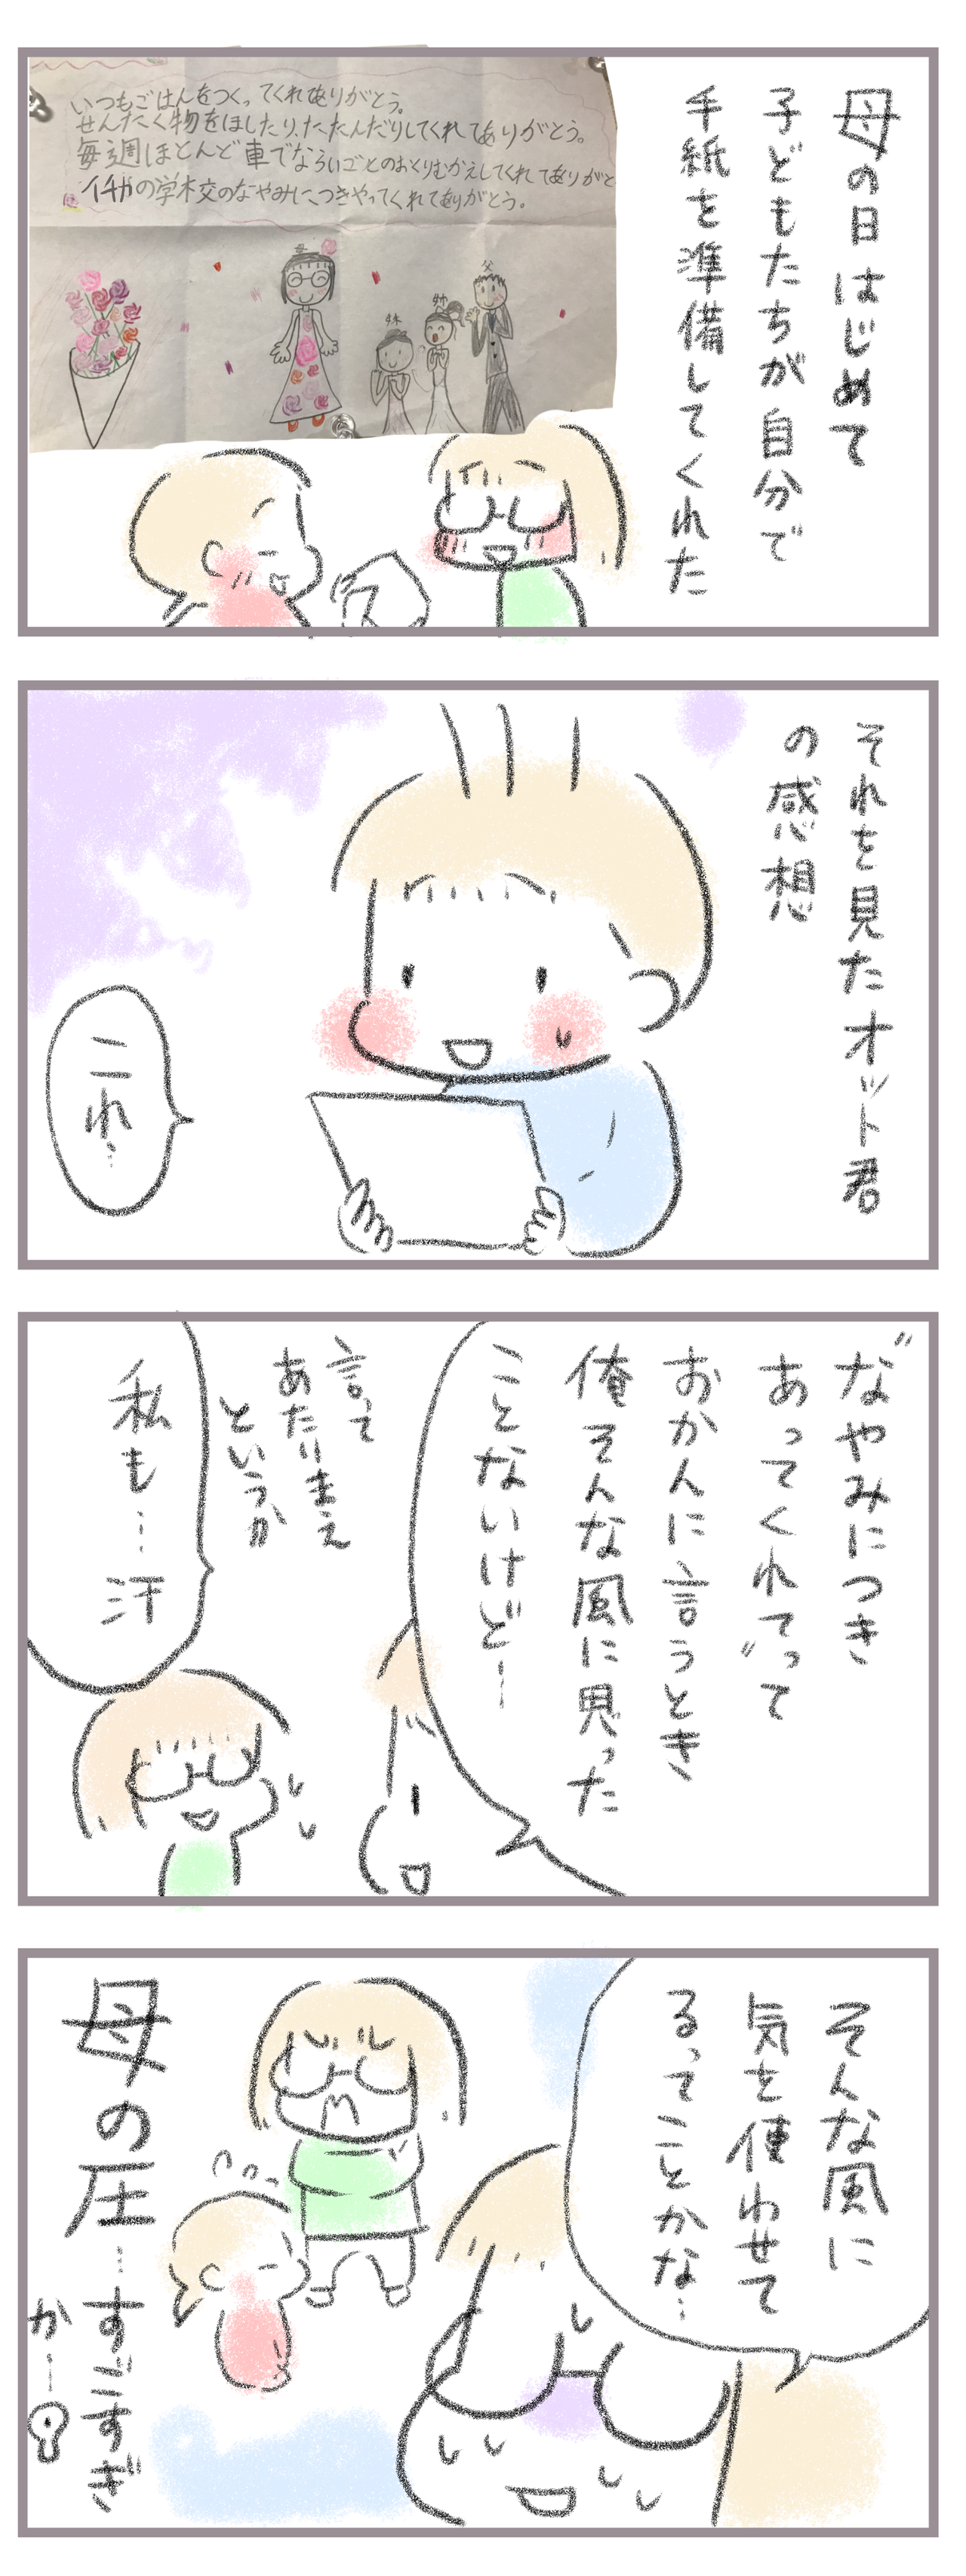 母の日はじめて
子どもたちが自分で
手紙を準備してくれた
いつもごはんをつくってくれてありがとう。
せんたく物をほしたり、たたんだりしてくれてありがとう。
毎週ほとんど車でならいごとのおくりむかえしてくれてありがと
イチカの学校のなやみにつきやってくれてありがとう。
父
姉
妹
母
それを見たオット君
の感想
これ…
"なやみにつき
あってくれて"って
おかんに言うとき
俺そんな風に思った
ことないけどー
言って
あたりまえ
というか
私も…汗
そんな風に
気を使わせて
るってことかな…
母の圧…すごすぎ
か…